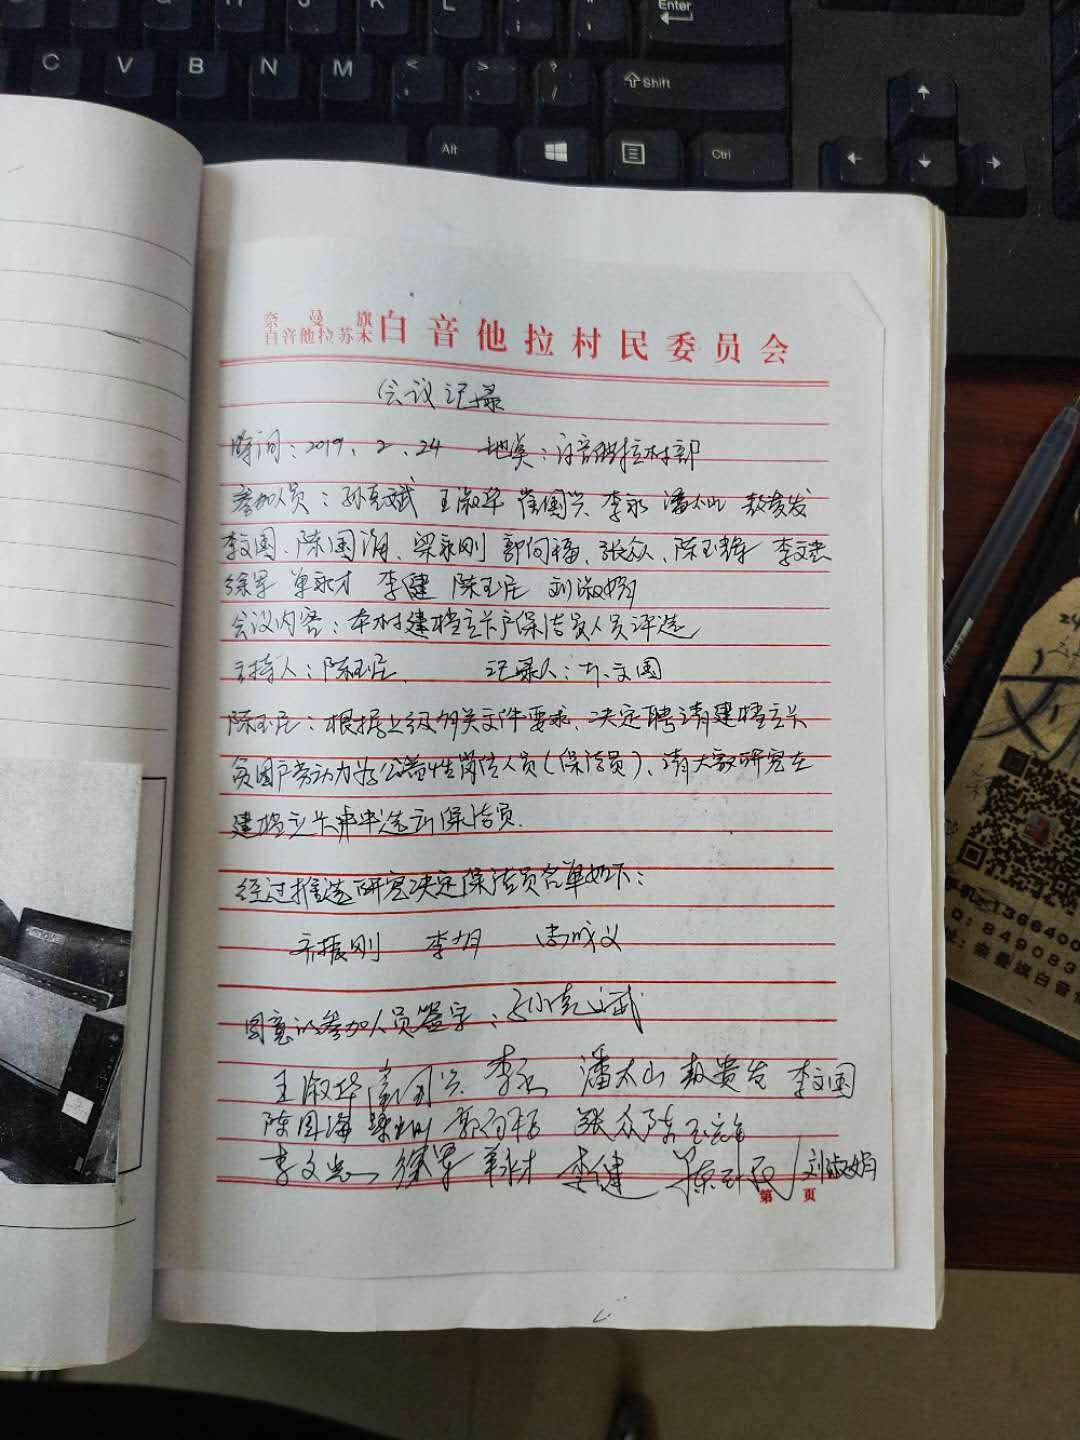 Enter
C V B N M < > ? Shift
Alt Ctrl
奈曼旗
白音他拉苏木 白音他拉村民委员会
会议记录
时间：2019.2.24 地点：白音他拉村部
参加人员：孙克斌 王淑华 李永 潘太山 敖贵发
李文国、陈国海、梁永刚 郭向福、张众、陈玉辉 李文忠
徐军 单永才 李健 陈玉民 刘淑娟
会议内容：本村建档立卡户保洁员人员评选
主持人：陈玉民、 记录人：李文国
陈玉民：根据上级有关文件要求、决定聘请建档立卡
贫困户劳动力为公益性岗位人员（保洁员）、请大家研究在
建档立卡户中选出保洁员.
经过推选研究决定保洁员名单如下：
齐振刚 李月
同意以参加人员签字：
王淑华 李永 潘太山 敖贵发 李文国
陈国海 梁永刚 郭向福 张众
李文忠 徐军 单永才 李健 陈玉民 刘淑娟
第 页